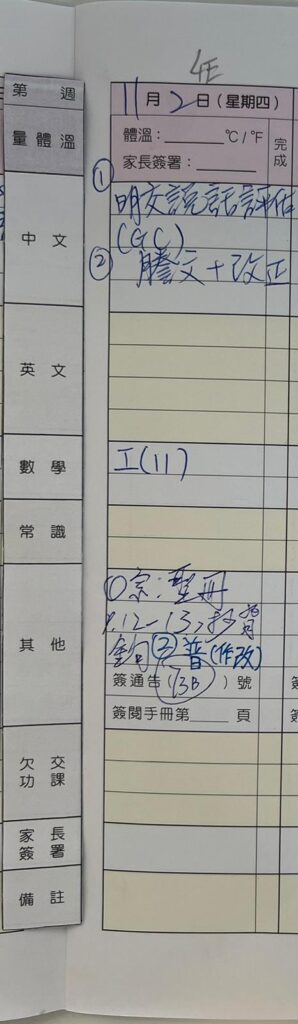 4E
第 週
11月2日(星期四)
量體溫
體溫：______°C/°F
家長簽署：______
完成
中文
① 明交說話評估
(GC)
② 謄文+改正
英文
數學
工(11)
常識
其他
①宗:聖冊
P.12-13,抄
金句②普(作改)
簽通告(13B)號
簽閱手冊第____頁
欠交功課
家長簽署
備註